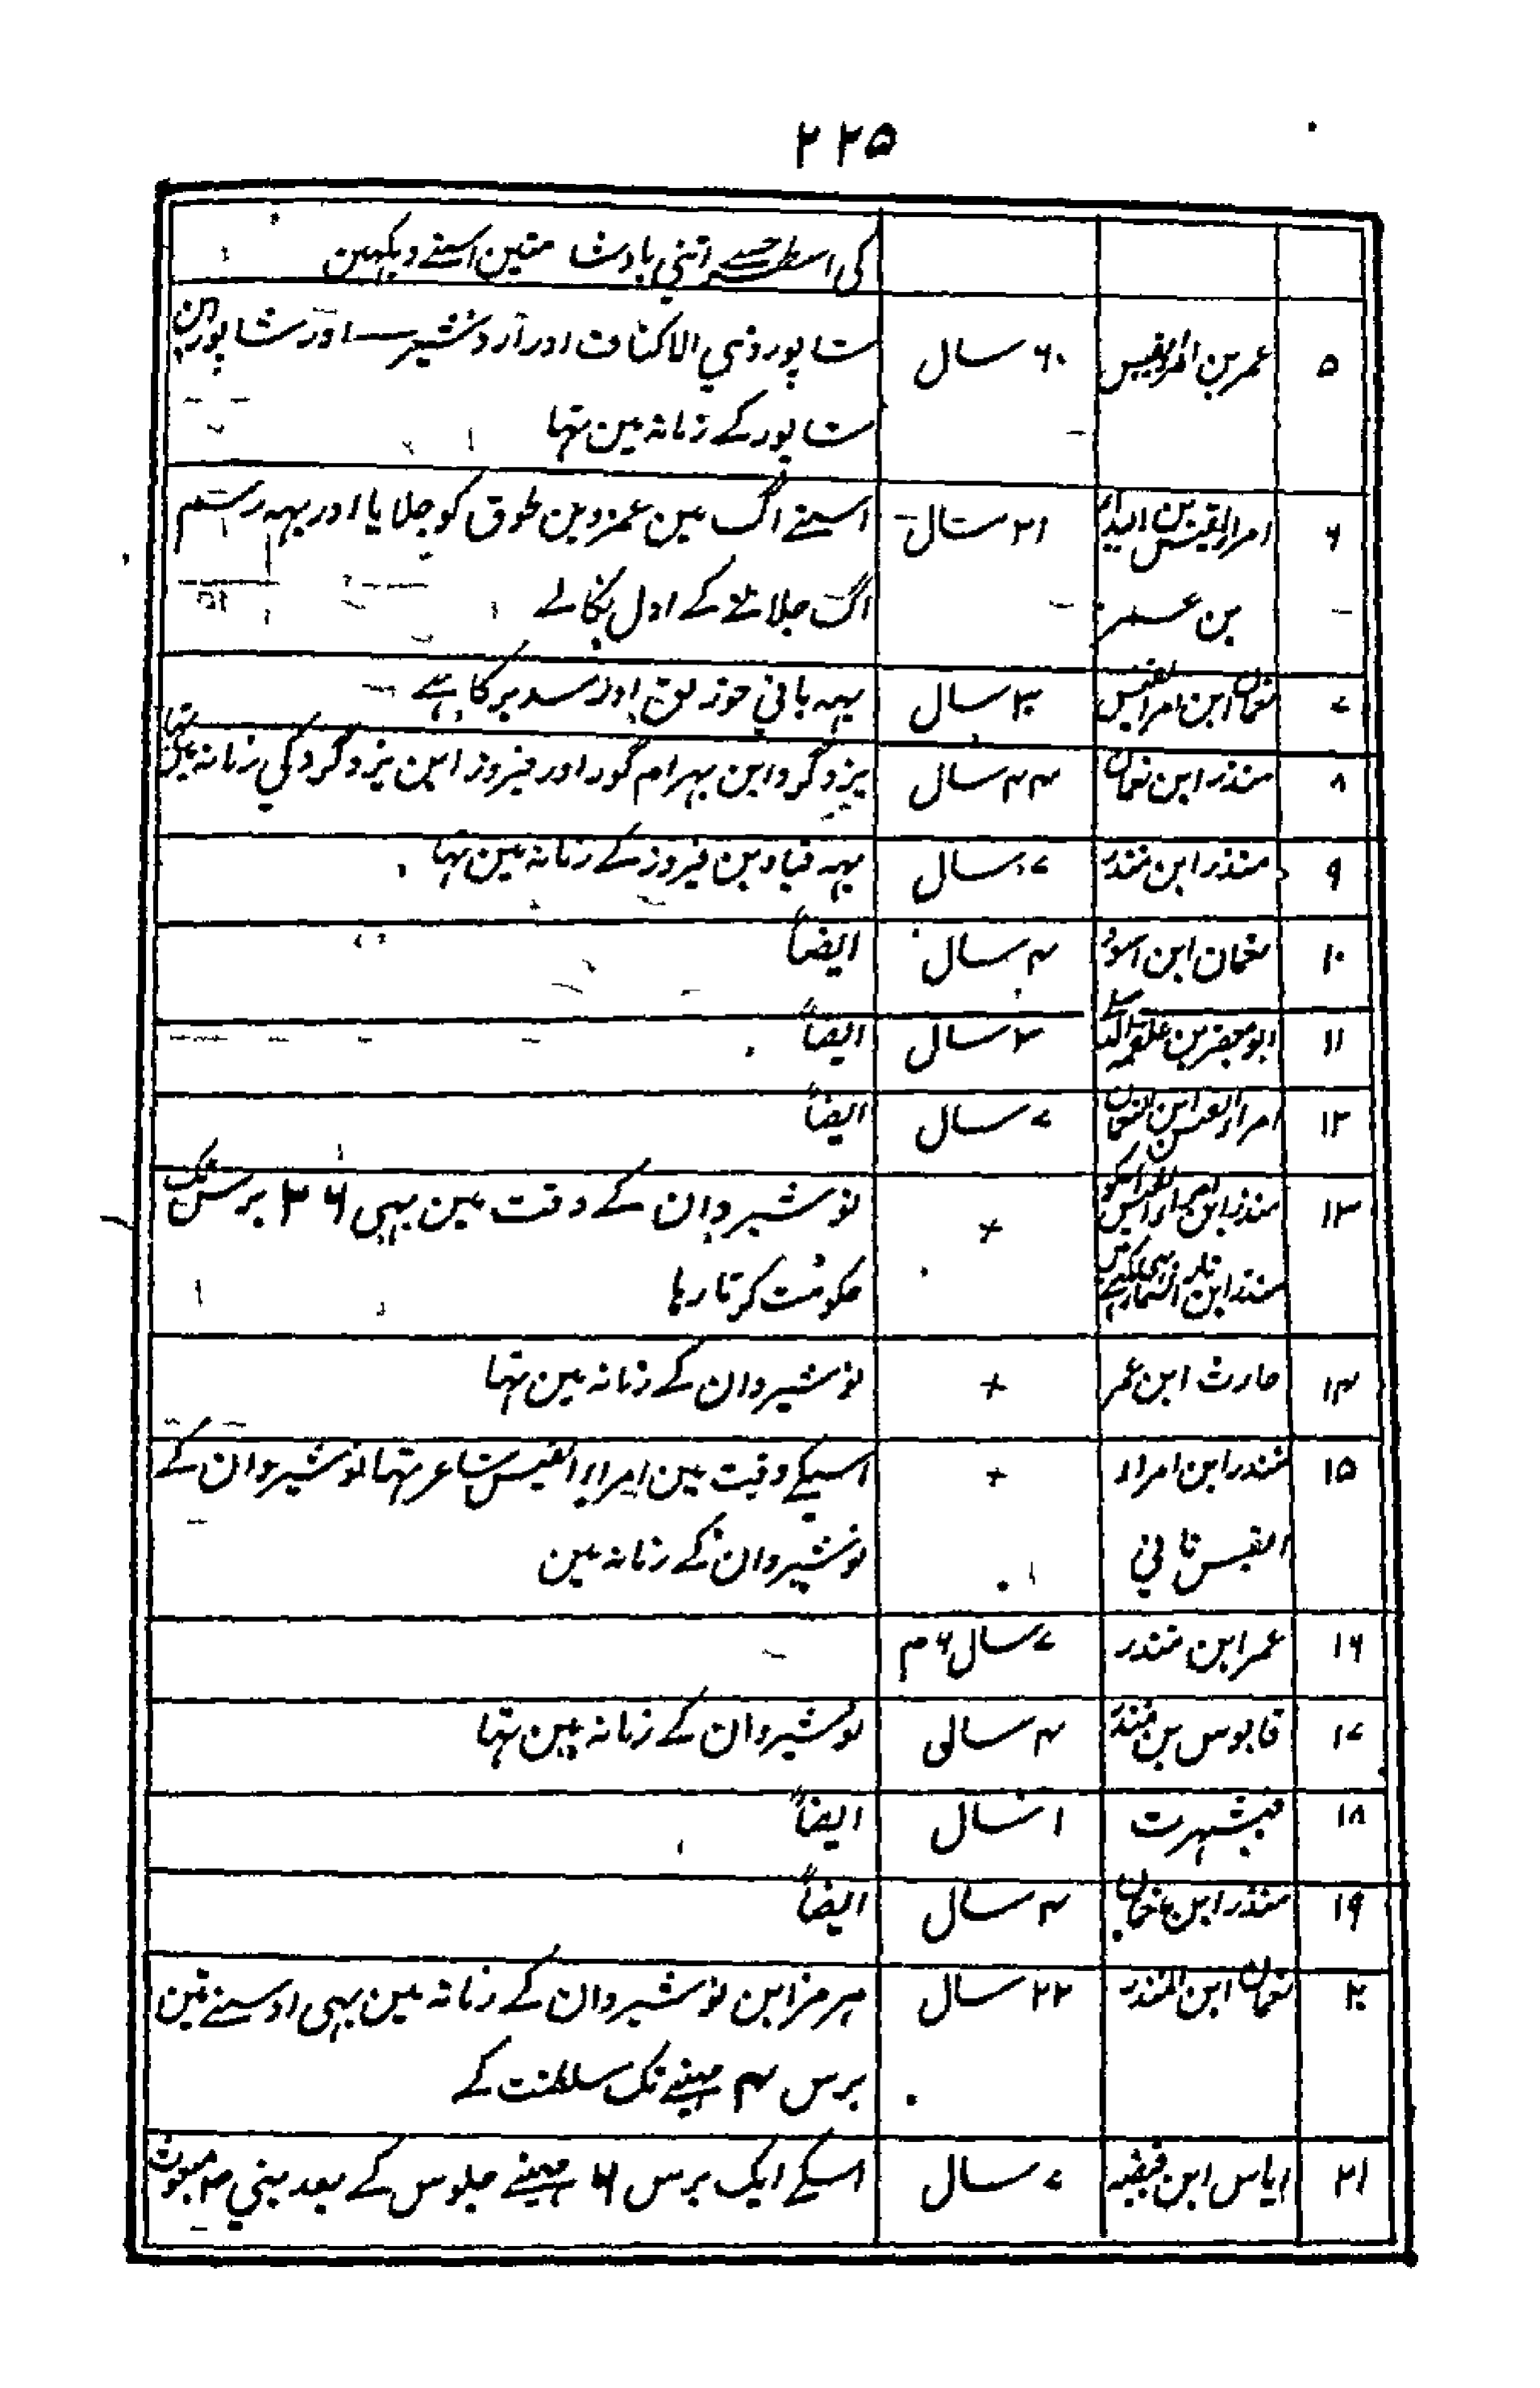 ۲۲۵
کی اسطرحسے اتنی بادشاہتین اسنے دیکہین
۵ عمر بن امراالقیس ۶۰ سال شاپور ذی الاکتاف اور اردشیر اور شاپور ابن
شاپور کے زمانہ مین تہا
۶ امراالقیس بن البداء ۲۱ سال اسنے اگ مین عمرو بن طوق کو جلایا اور یہہ رسم
بن عمر اگ جلانے کے اول نکالے
۷ نعمان ابن امراالقیس ۳۰ سال یہہ بانی خورنق اور سدیر کا ہے
۸ منذر ابن نعمان ۴۴ سال یزدگرد ابن بہرام گور اور فیروز ابن یزدگرد کی زمانہ مین تہا
۹ منذر ابن منذر ۷ سال یہہ قباد بن فیروز کے زمانہ مین تہا
۱۰ نعمان ابن اسود ۴ سال ایضاً
۱۱ ابو جعفر بن علقمہ ۳ سال ایضاً
۱۲ امراء القیس ابن نعمان ۷ سال ایضاً
۱۳ منذر ابن امراء القیس + نوشیروان کے وقت مین بہی ۳۶ برس تک
منذر ابن ماء السماء حکومت کرتا رہا
۱۴ حارث ابن عمر + نوشیروان کے زمانہ مین تہا
۱۵ منذر ابن امراء + اسیکے وقت مین امراء القیس شاعر تہا نوشیروان کے
القیس ثانی نوشیروان کے زمانہ مین
۱۶ عمر ابن منذر ۷ سال ۶ م
۱۷ قابوس بن منذر ۴ سالی نوشیروان کے زمانہ مین تہا
۱۸ فیشہرت ۱ سال ایضاً
۱۹ منذر ابن نعمان ۴ سال ایضاً
۲۰ نعمان ابن المنذر ۲۲ سال ہرمز ابن نوشیروان کے زمانہ مین بہی اوسنے تین
برس ۴ مہینے تک سلطنت کے
۲۱ ایاس ابن قبیصہ ۷ سال اسکے ایک برس ۶ مہینے جلوس کے بعد نبی ﷺ مبعوث